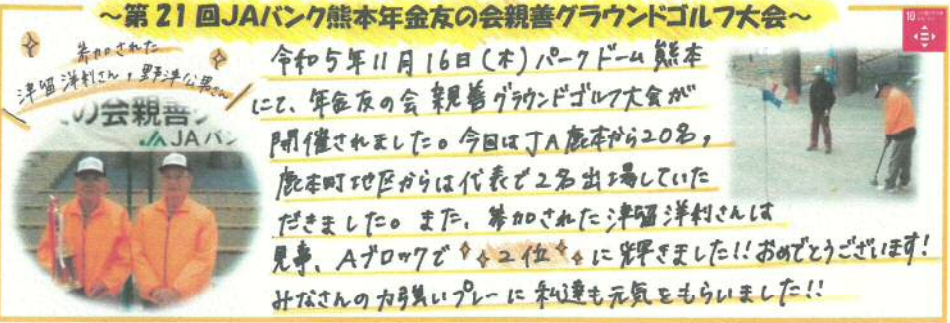 ～第21回JAバンク熊本年金友の会親善グラウンドゴルフ大会～
10
参加された
津留洋利さん,野津公男さん
の会親善グ
JAバン
令和5年11月16日(木)パークドーム熊本
にて、年金友の会 親善グラウンドゴルフ大会が
開催されました。今回はJA鹿本から20名,
鹿本町地区からは代表で2名出場していた
だきました。また、参加された津留洋利さんは
見事、Aブロックで 2位 に輝きました!!おめでとうございます!
みなさんの力強いプレーに私達も元気をもらいました!!